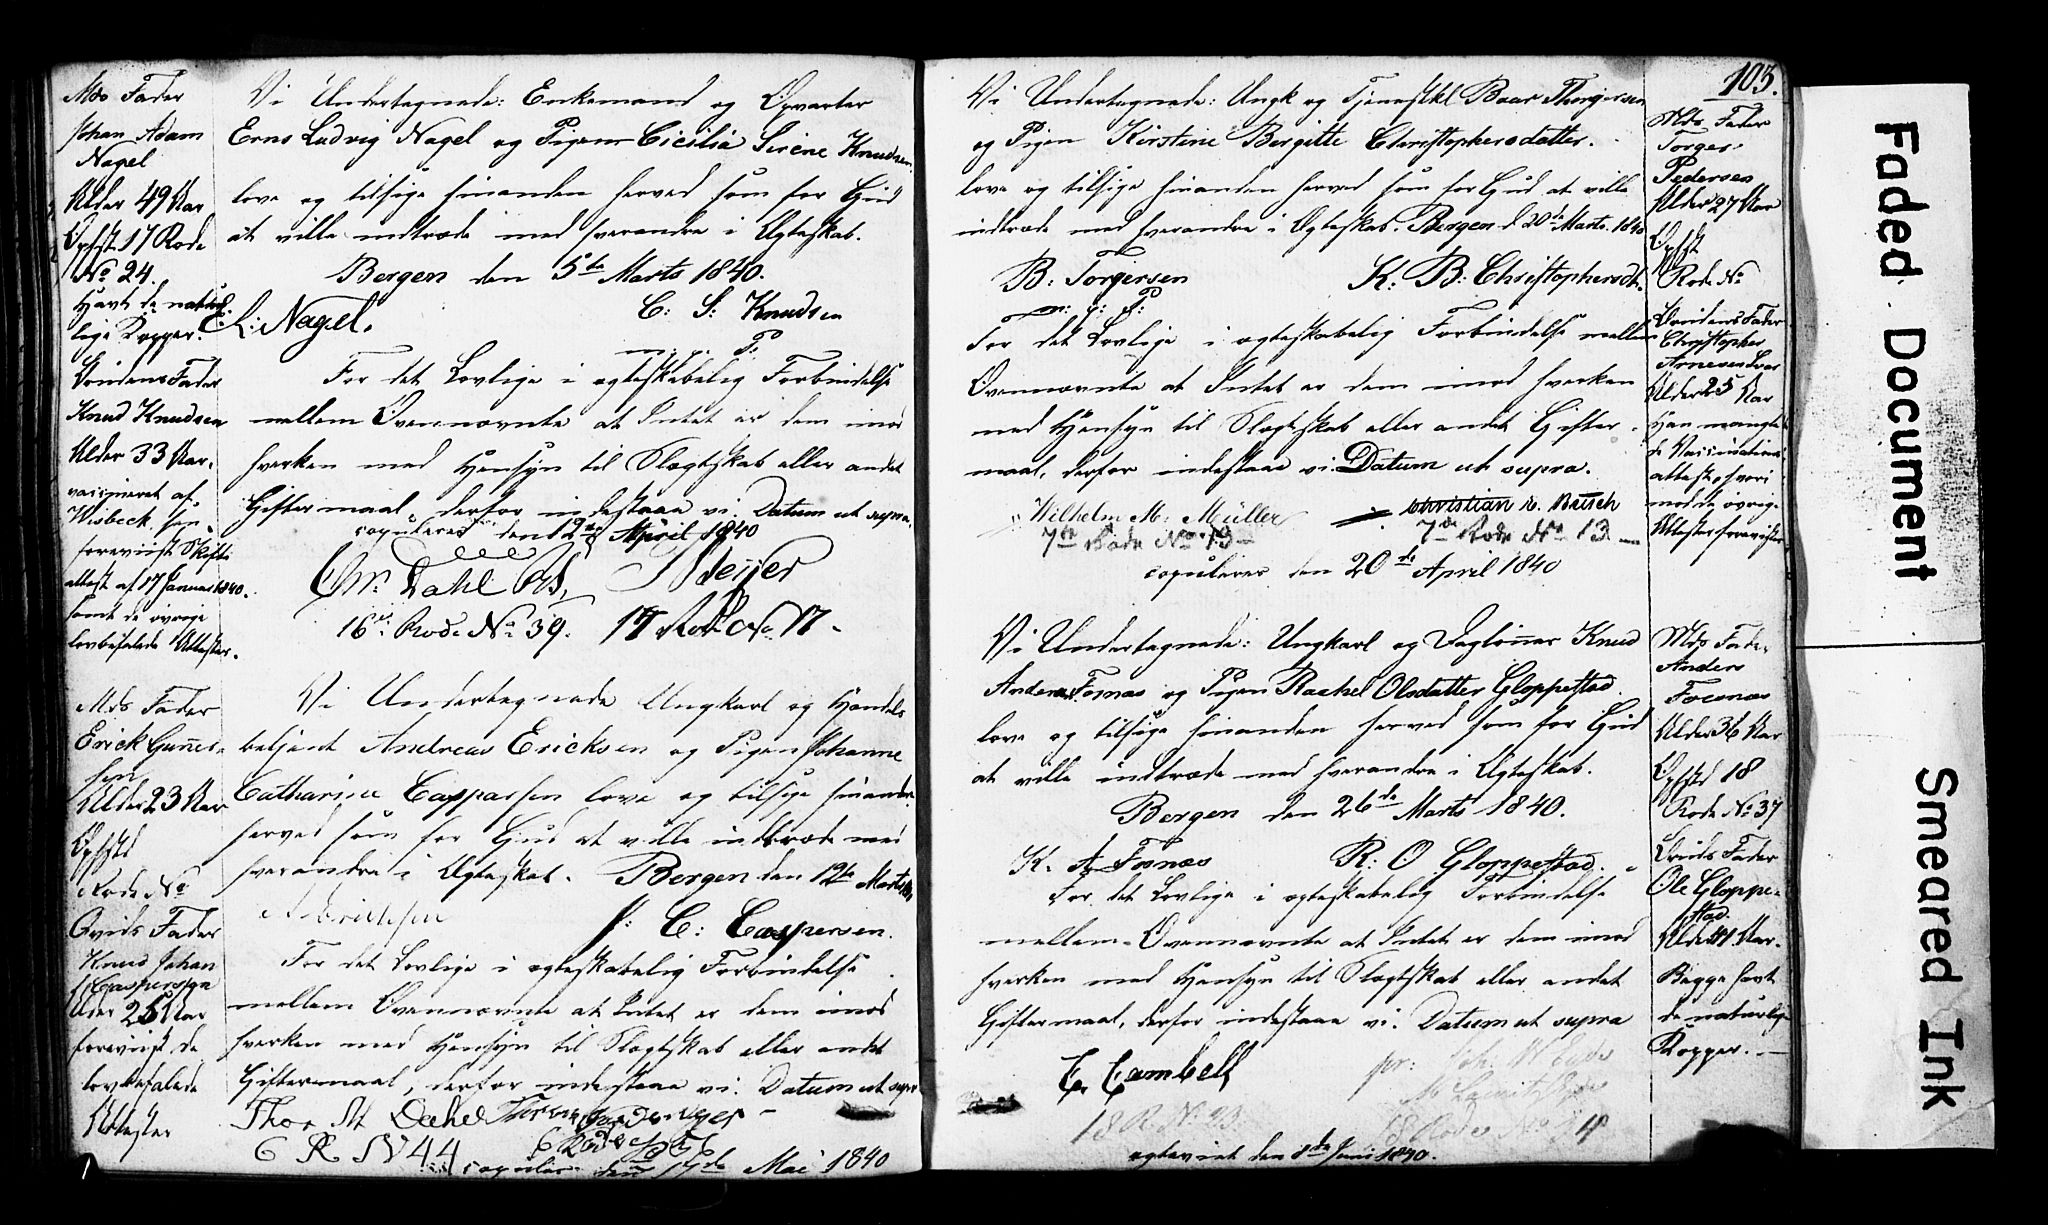 Mds Fader
Johan Adam
Nagel
Alder 49 Aar
Opfst. 17 Rode
No 24.
Havt de natur
lige Kopper.
Brudens Fader
Knud Knudsen
Alder 33 Aar.
vaccineret af
Wisbeck, han
foreviist Skifte
attest af 17 Januar 1840.
samt de øvrige
lovbefalede Attester.
Vi Undertegnede: Enkemand og Opvarter
Erns Ludvig Nagel og Pigen Cicilia Sirene Knudsen
love og tilsige hinanden herved som for Gud
at ville indtræde med hverandre i Ægteskab.
Bergen den 5te Marts 1840.
E. L: Nagel.
C: S: Knudsen
m. f. P.
For det Lovlige i ægteskabelig Forbindelse
mellem Ovennævnte at Intet er dem imod
hverken med Hensyn til Slægtskab eller andet
Giftermaal, derfor indestaae vi. Datum ut supra.
copuleres den 12te April 1840
Chr. Dahl
Meyer
16de Rode No 39. 17 Rode No. 17
Mds Fader
Erick Gunner-
sen
Alder 23 Aar
Opfstd
Rode No
Bruds Fader
Knud Johan
Caspersen
Alder 25 Aar
foreviist de
lovbefalede
Attester
Vi Undertegnede Ungkarl og Handels
betjent Andreas Ericksen og Pigen Johanne
Catharine Caspersen love og tilsige hinanden
herved som for Gud at ville indtræde med
hverandre i Ægteskab. Bergen den 12te Marts
A Erichsen
J: C: Caspersen.
For det Lovlige i ægteskabelig Forbindelse
mellem Ovennævnte at Intet er dem imod
hverken med Hensyn til Slægtskab eller andet
Giftermaal, derfor indestaae vi. Datum ut supra
Thor M Dahl
6 R N 44 6 Rode
copuler den 17de Mai 1840
103.
Vi Undertegnede: Ungk og Tjenestkl Baar Thorgersen
og Pigen Kirstine Bergitte Christophersdatter.
love og tilsige hinanden herved som for Gud at ville
indtræde med hverandre i Ægteskab. Bergen d 20de Marts. 1840
B: Torgersen K: B: Christophersdt.
m. f. P:
For det Lovlige i ægteskabelig Forbindelse mellem
Ovennævnte at Intet er dem imod hverken
med Hensyn til Slægtskab eller andet Gifter-
maal, derfor indestaae vi. Datum ut supra.
Wilhelm M. Müller Christian
7de Rode No 13 7de Rode No 13
copuleres den 20de April 1840
Mds Fader
Torger
Pedersen
Alder 27 Aar
Opfst
Rode No
Brudens Fader
Christopher
Arnesen
Alder 25 Aar
Han mangle
de Vaccinations
attest, hvori
mod de øvrige
Attester forevistes
Vi Undertegnede: Ungkarl og Daglønner Knud
Anders. Fosnæs og Pigen Rachel Olsdatter Gloppestad.
love og tilsige hinanden herved som for Gud
at ville indtræde med hverandre i Ægteskab.
Bergen den 26de Marts 1840.
K. A. Fosnæs R: O Gloppestad.
For det Lovlige i ægteskabelig Forbindelse
mellem Ovennævnte at Intet er dem imod
hverken med Hensyn til Slægtskab eller andet
Giftermaal, derfor indestaae vi. Datum ut supra
C. Cambell
18 R. No 23. 18 Rode No
ægteviet den 8de Juni 1840.
Mds Fader
Anders
Fosenæs
Alder 36 Aar
Opfstd 18
Rode No 37
Bruds Fader
Ole Gloppe-
stad.
Alder 41 Aar.
Begge havt
de naturlige
Kopper.
Faded Document
Smeared Ink